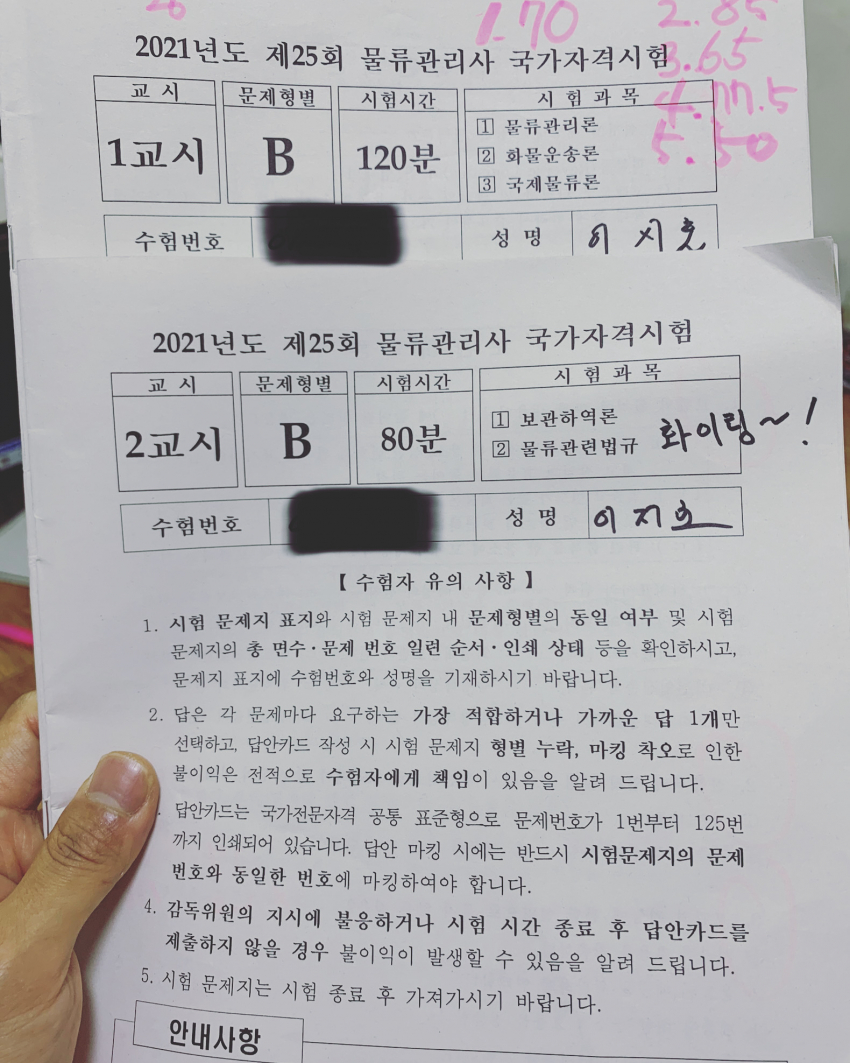 1. 70
2. 85
3. 65
4. 77.5
5. 50
2021년도 제25회 물류관리사 국가자격시험
교 시 문제형별 시험시간 시 험 과 목
1교시 B 120분
1 물류관리론
2 화물운송론
3 국제물류론
수험번호 성 명 이지호
2021년도 제25회 물류관리사 국가자격시험
교 시 문제형별 시험시간 시 험 과 목
2교시 B 80분
1 보관하역론
2 물류관련법규
화이링~!
수험번호 성 명 이지호
【 수험자 유의 사항 】
1. 시험 문제지 표지와 시험 문제지 내 문제형별의 동일 여부 및 시험
문제지의 총 면수·문제 번호 일련 순서·인쇄 상태 등을 확인하시고,
문제지 표지에 수험번호와 성명을 기재하시기 바랍니다.
2. 답은 각 문제마다 요구하는 가장 적합하거나 가까운 답 1개만
선택하고, 답안카드 작성 시 시험 문제지 형별 누락, 마킹 착오로 인한
불이익은 전적으로 수험자에게 책임이 있음을 알려 드립니다.
답안카드는 국가전문자격 공통 표준형으로 문제번호가 1번부터 125번
까지 인쇄되어 있습니다. 답안 마킹 시에는 반드시 시험문제지의 문제
번호와 동일한 번호에 마킹하여야 합니다.
4. 감독위원의 지시에 불응하거나 시험 시간 종료 후 답안카드를
제출하지 않을 경우 불이익이 발생할 수 있음을 알려 드립니다.
5. 시험 문제지는 시험 종료 후 가져가시기 바랍니다.
안내사항